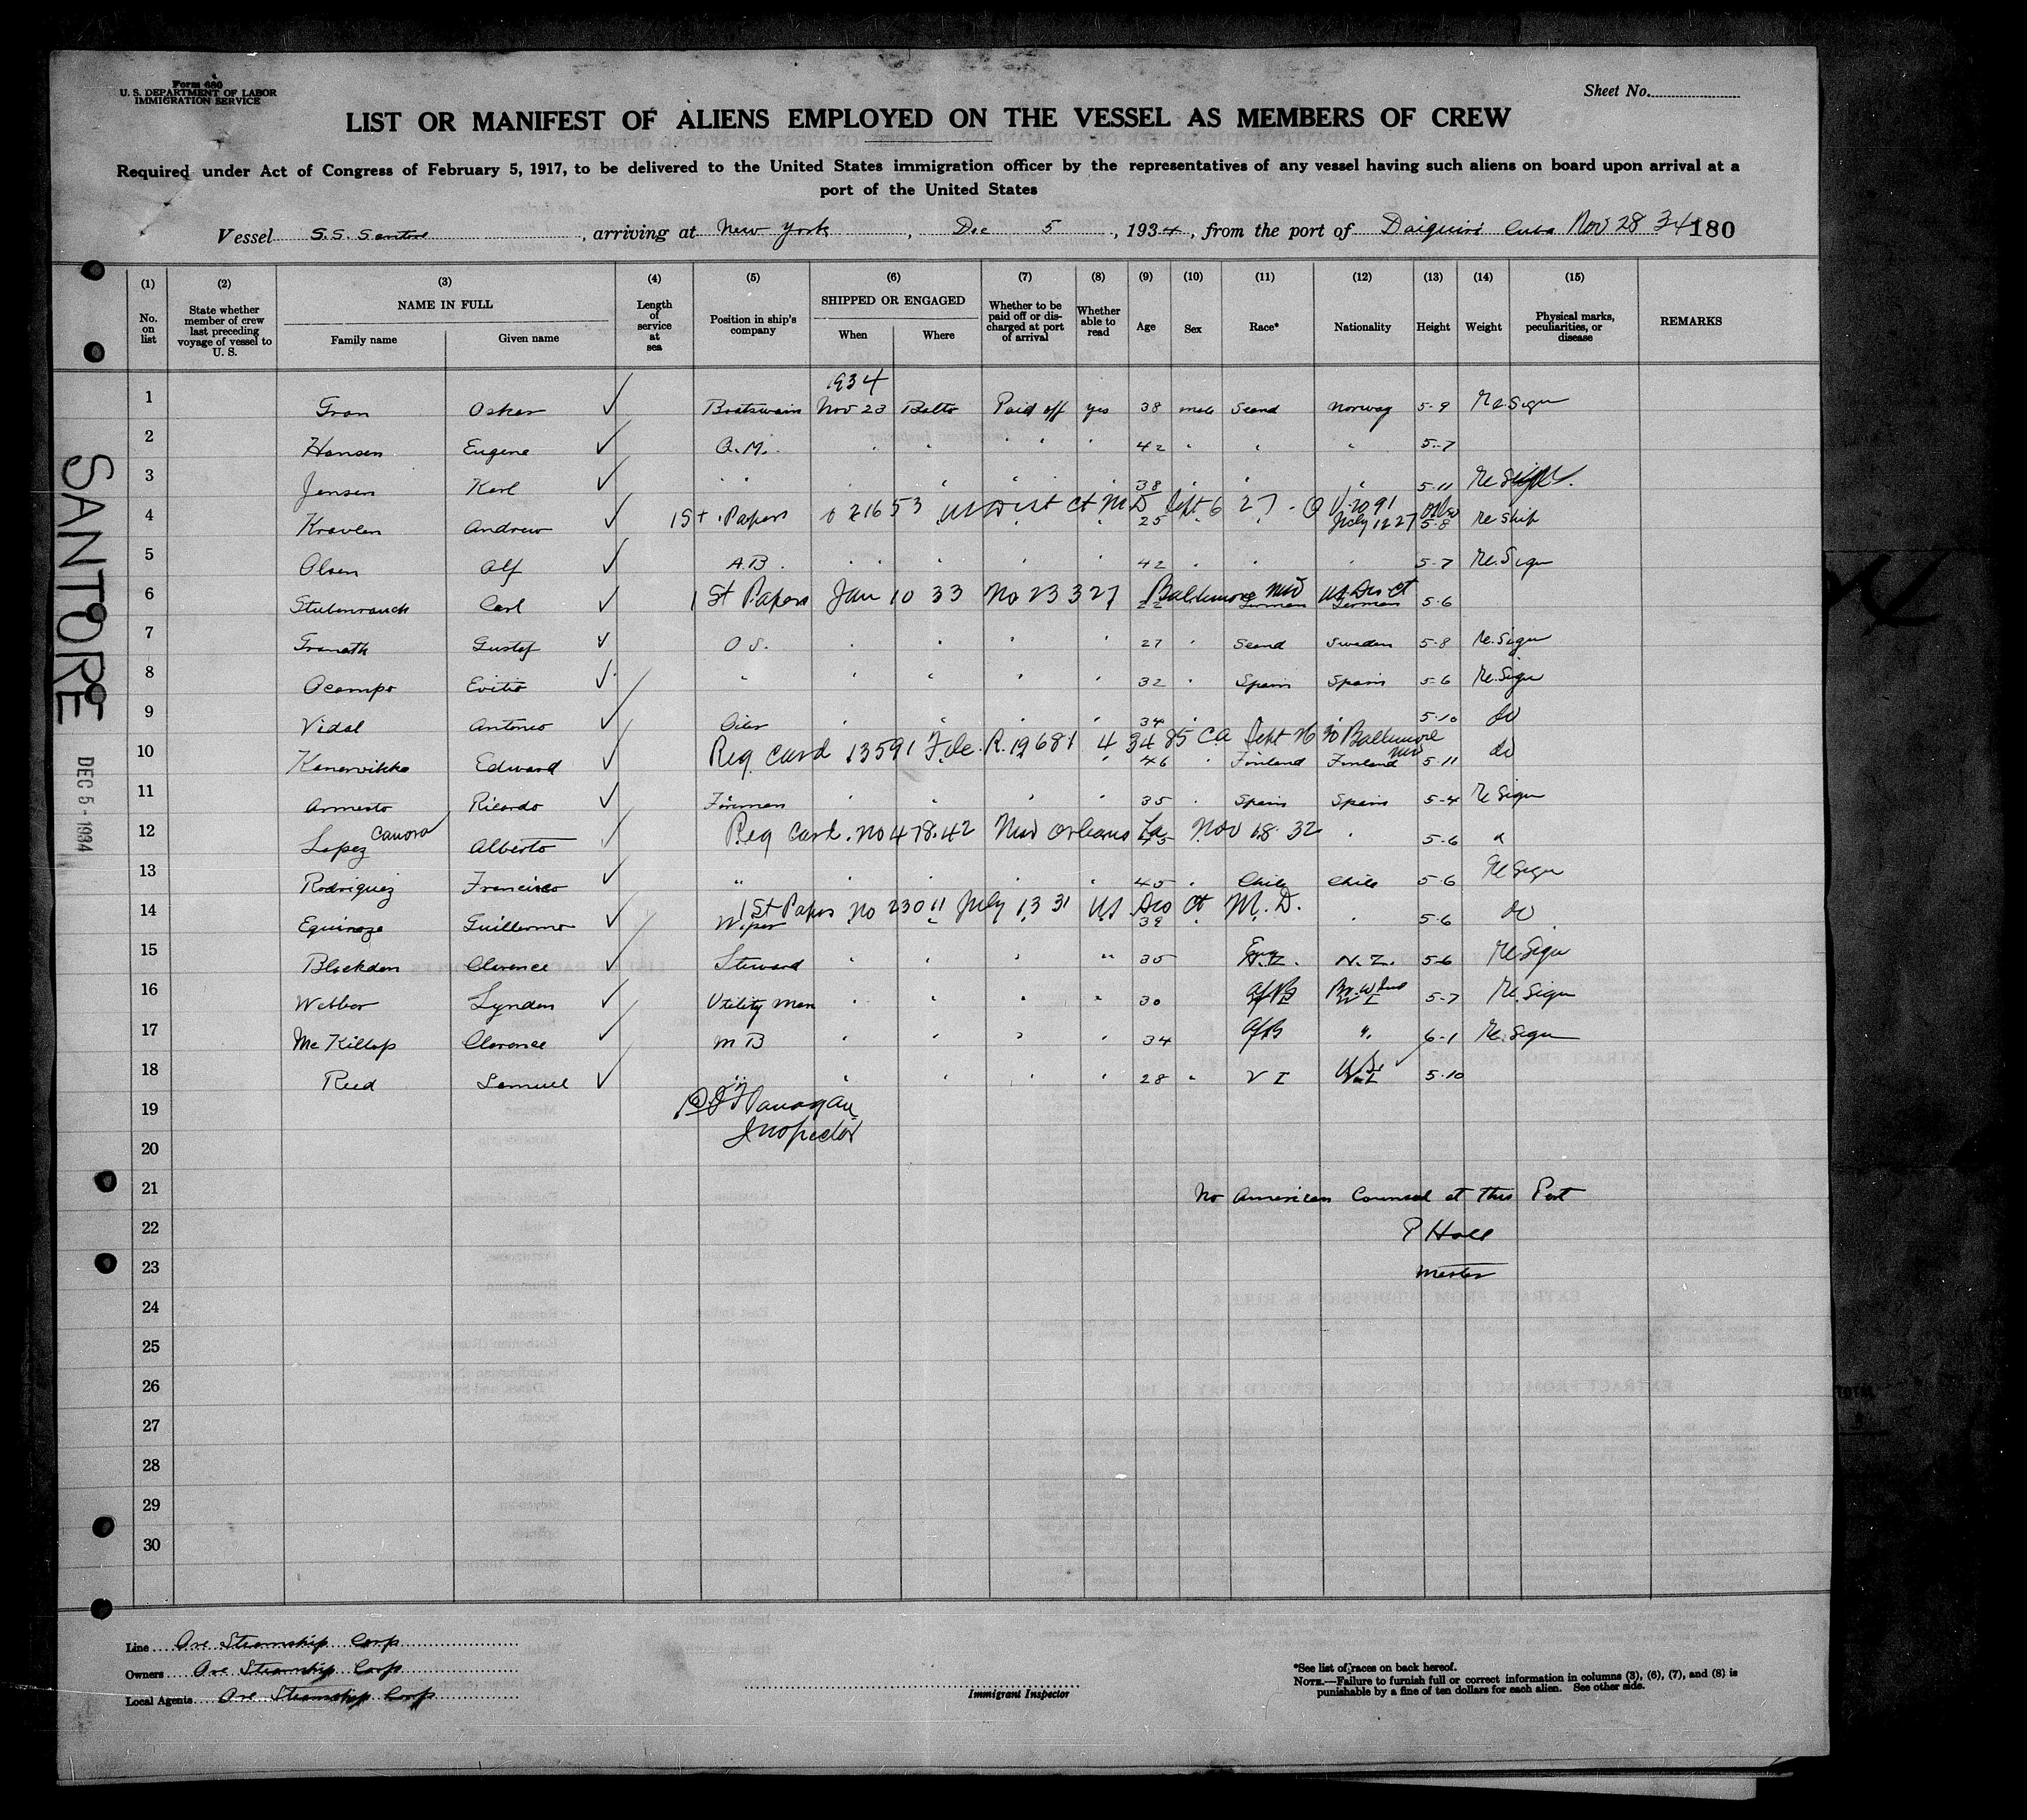 Form 680
U. S. DEPARTMENT OF LABOR
IMMIGRATION SERVICE
Sheet No.
LIST OR MANIFEST OF ALIENS EMPLOYED ON THE VESSEL AS MEMBERS OF CREW
Required under Act of Congress of February 5, 1917, to be delivered to the United States immigration officer by the representatives of any vessel having such aliens on board upon arrival at a
port of the United States
Vessel S.S. Santore, arriving at New York, Dec 5, 1934, from the port of Daiquiri Cuba Nov 28 34 180
(1) No. on list
(2) State whether member of crew last preceding voyage of vessel to U. S.
(3) NAME IN FULL Family name Given name
(4) Length of service at sea
(5) Position in ship's company
(6) SHIPPED OR ENGAGED When Where
(7) Whether to be paid off or discharged at port of arrival
(8) Whether able to read
(9) Age
(10) Sex
(11) Race*
(12) Nationality
(13) Height
(14) Weight
(15) Physical marks, peculiarities, or disease
REMARKS
1934
1 Gran Oskar ✓ Boatswain Nov 23 Balto Paid off yes 38 male Scand Norway 5-9 Re Sign
2 Hansen Eugene ✓ Q.M. " " " " " 42 " " " 5-7
3 Jensen Karl ✓ " " " " " 38 " " " 5-11 Re Sign
4 Andrew ✓ 1st Papers 21653 US Dist Ct MD Sept 6 27 25 July 12 27 5-8 Re ship
5 Olsen Alf ✓ A.B. " " " " 42 " " " 5-7 Re Sign
6 Stubenrauch Carl ✓ 1st Papers Jan 10 33 No 23327 Baltimore Md US Dis Ct 22 German German 5-6
7 Granath Gustaf ✓ O S. " " " " 27 " Scand Sweden 5-8 Re Sign
8 Ocampo ✓ " " " " " 32 " Spain Spain 5-6 Re Sign
9 Vidal Antonio ✓ Oiler " " " " 34 " " " 5-10 do
10 Edward ✓ Reg Card 13591 File R. 19681 43485 Ca Sept 26 30 Baltimore Md 46 " Finland Finland 5-11 do
11 Armesto Ricardo ✓ Fireman " " " " 35 " Spain Spain 5-4 Re Sign
12 Lopez Canova Alberto ✓ Reg Card. No 47842 New Orleans La Nov 18 32 " 5-6
13 Rodriguez Francisco ✓ " " " " " 45 " Chile Chile 5-6 Re Sign
14 Guillermo ✓ 1st Papers No 23011 July 13 31 US Dis Ct M. D. Wiper 39 " " 5-6 do
15 Clarence ✓ Steward " " " " 35 N.Z. N.Z. 5-6 Re Sign
16 Webber Lynden ✓ Utility Man " " " " 30 Af B Br W Ind 5-7 Re Sign
17 Mc Killop Clarence ✓ M B " " " " 34 Af B " 6-1 Re Sign
18 Reed Samuel ✓ " " " " " 28 " V I 5-10
19 Flanagan
Inspector
20
21 No American Counsel at this Port
22 P Hall
23 Master
24
25
26
27
28
29
30
SANTORE
DEC 5 - 1934
Line Ore Steamship Corp
Owners Ore Steamship Corp
Local Agents Ore Steamship Corp
Immigrant Inspector
*See list of races on back hereof.
NOTE.—Failure to furnish full or correct information in columns (3), (6), (7), and (8) is
punishable by a fine of ten dollars for each alien. See other side.